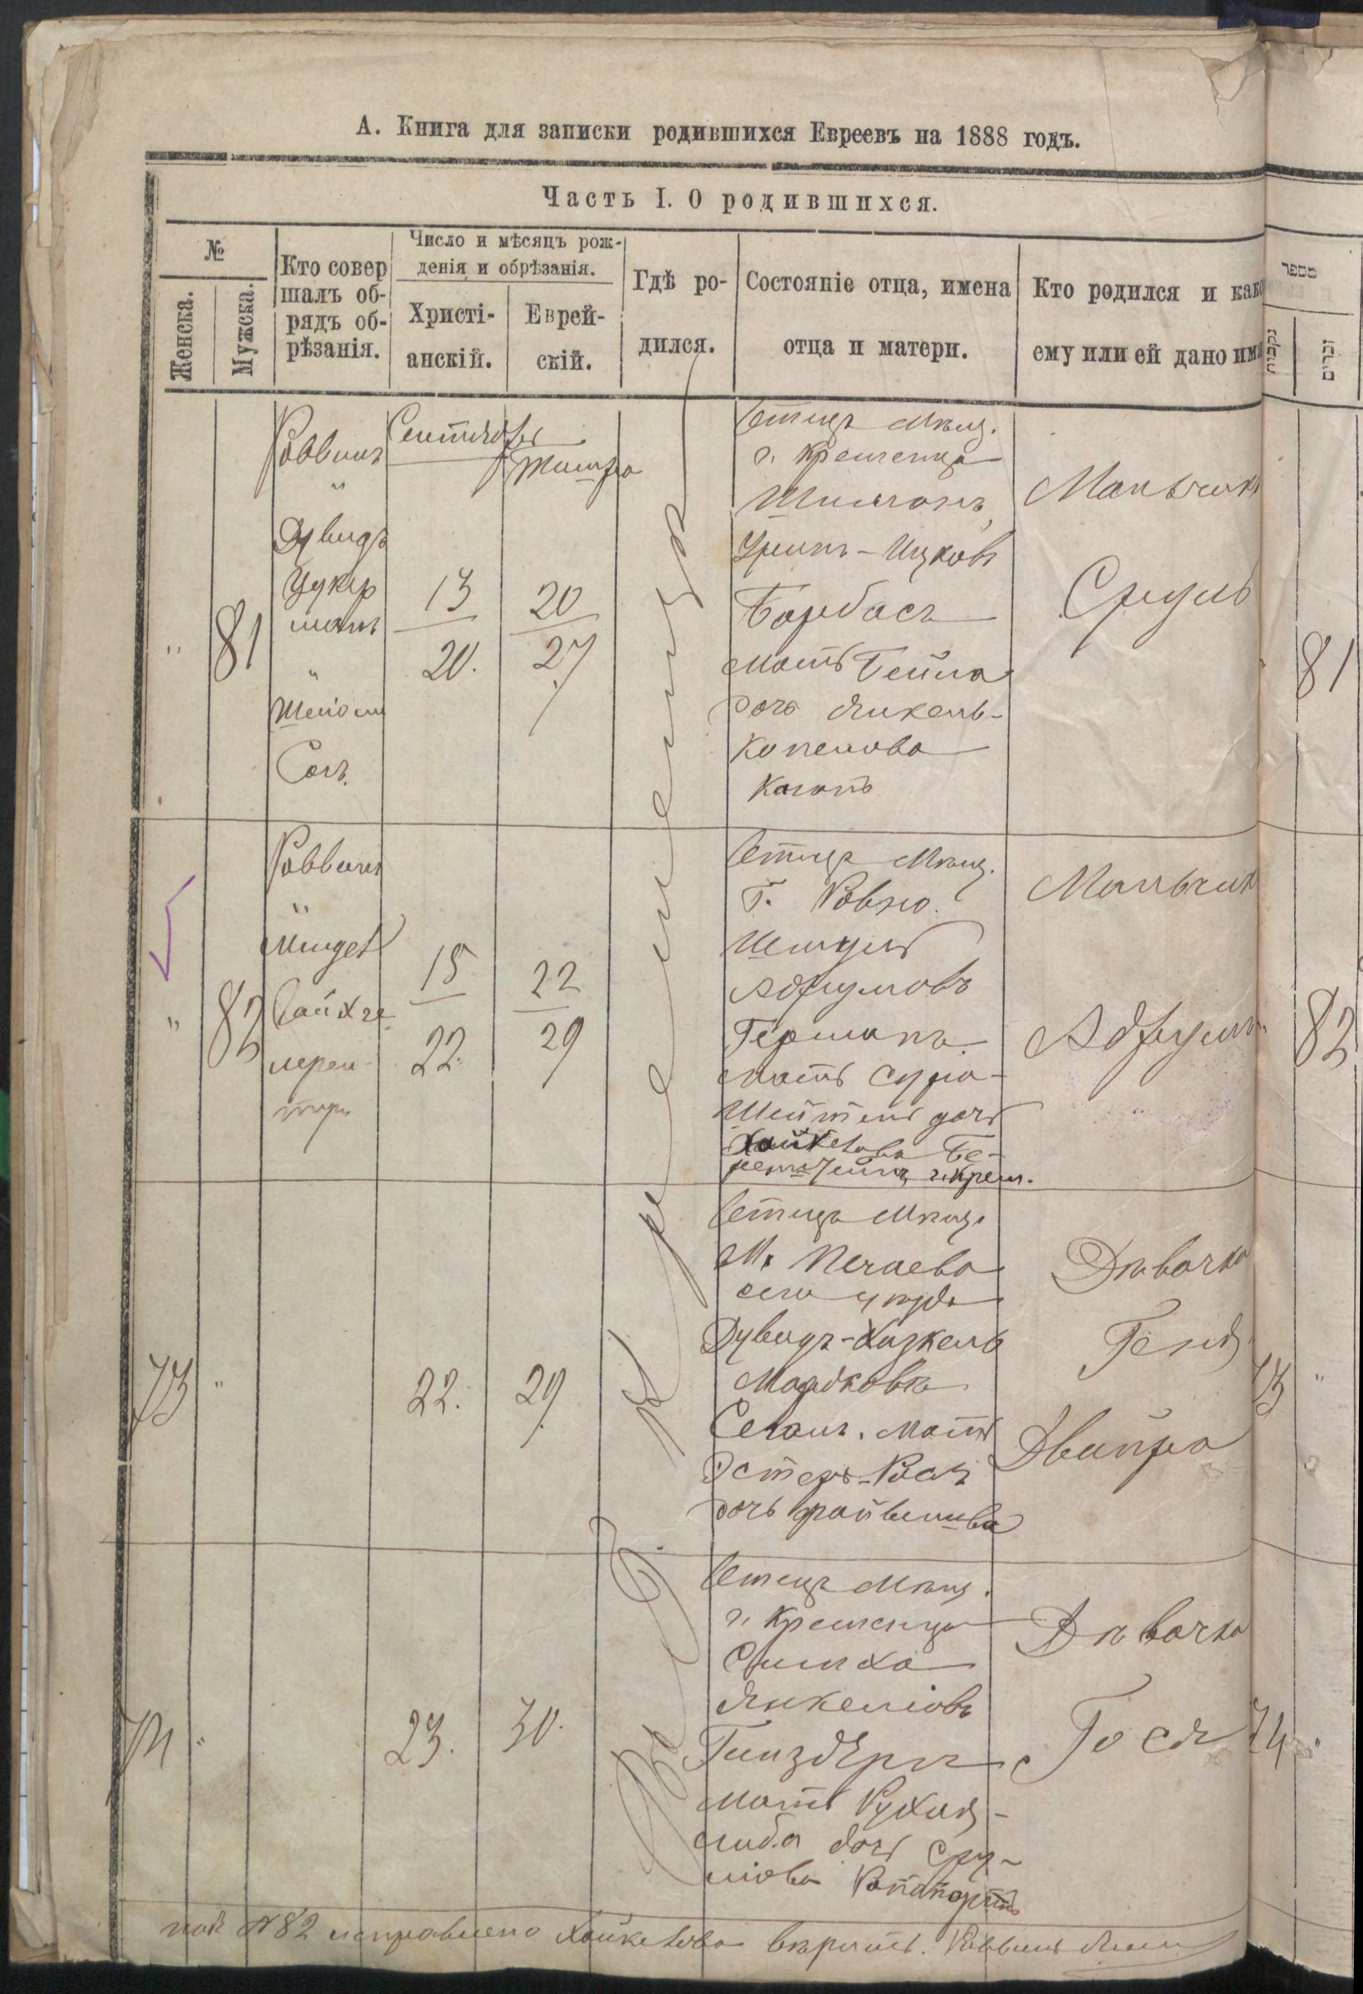 А. Книга для записки родившихся Евреевъ на 1888 годъ.
Часть I. О родившихся.
№
Женска.
Мужска.
Кто совер
шалъ об-
рядъ об-
рѣзанія.
Число и мѣсяцъ рож-
денія и обрѣзанія.
Христі-
анскій.
Еврей-
скій.
Гдѣ ро-
дился.
Состояніе отца, имена
отца и матери.
Кто родился и како
ему или ей дано имя
מספר
נקבות
זכרים
Въ г. Кременцѣ
" 81
Раввинъ
"
Дувидъ
Цукер
манъ
"
Сентября
Тишра
13
20.
20
27
Отецъ Мѣщ.
г. Кременца
Шимонъ
Урынъ-Ицковъ
Барбасъ
мать Бейла
дочь Янкель-
Копелова
Коганъ
Мальчикъ
Сруль
81
" 82
Раввинъ
"
15
22.
22
29
Отецъ Мѣщ.
г. Ровно.
Шмуль
Абрумовъ
Германъ.
мать Сура-
Шейтель дочь
Хайкелова Бе-
г. Крем.
Мальчикъ
Абрумъ.
82
73 "
22.
29.
Отецъ Мѣщ.
м. Почаева
сего уѣзда
Дувидъ-Хазкель
Мордковъ
Сегалъ. мать
Эстеръ-Рося
дочь Файвишова
Дѣвочка
Геня
Двойра
73 "
74 "
23.
30.
Отецъ Мѣщ.
г. Кременца
Симха
Янкеліовъ
Гинзбергъ
мать Рухля-
либа дочь Сру-
ліова Рапапортъ
Дѣвочка
Гося
74 "
под №82 исправлено Хайкелова вѣрить. Раввинъ